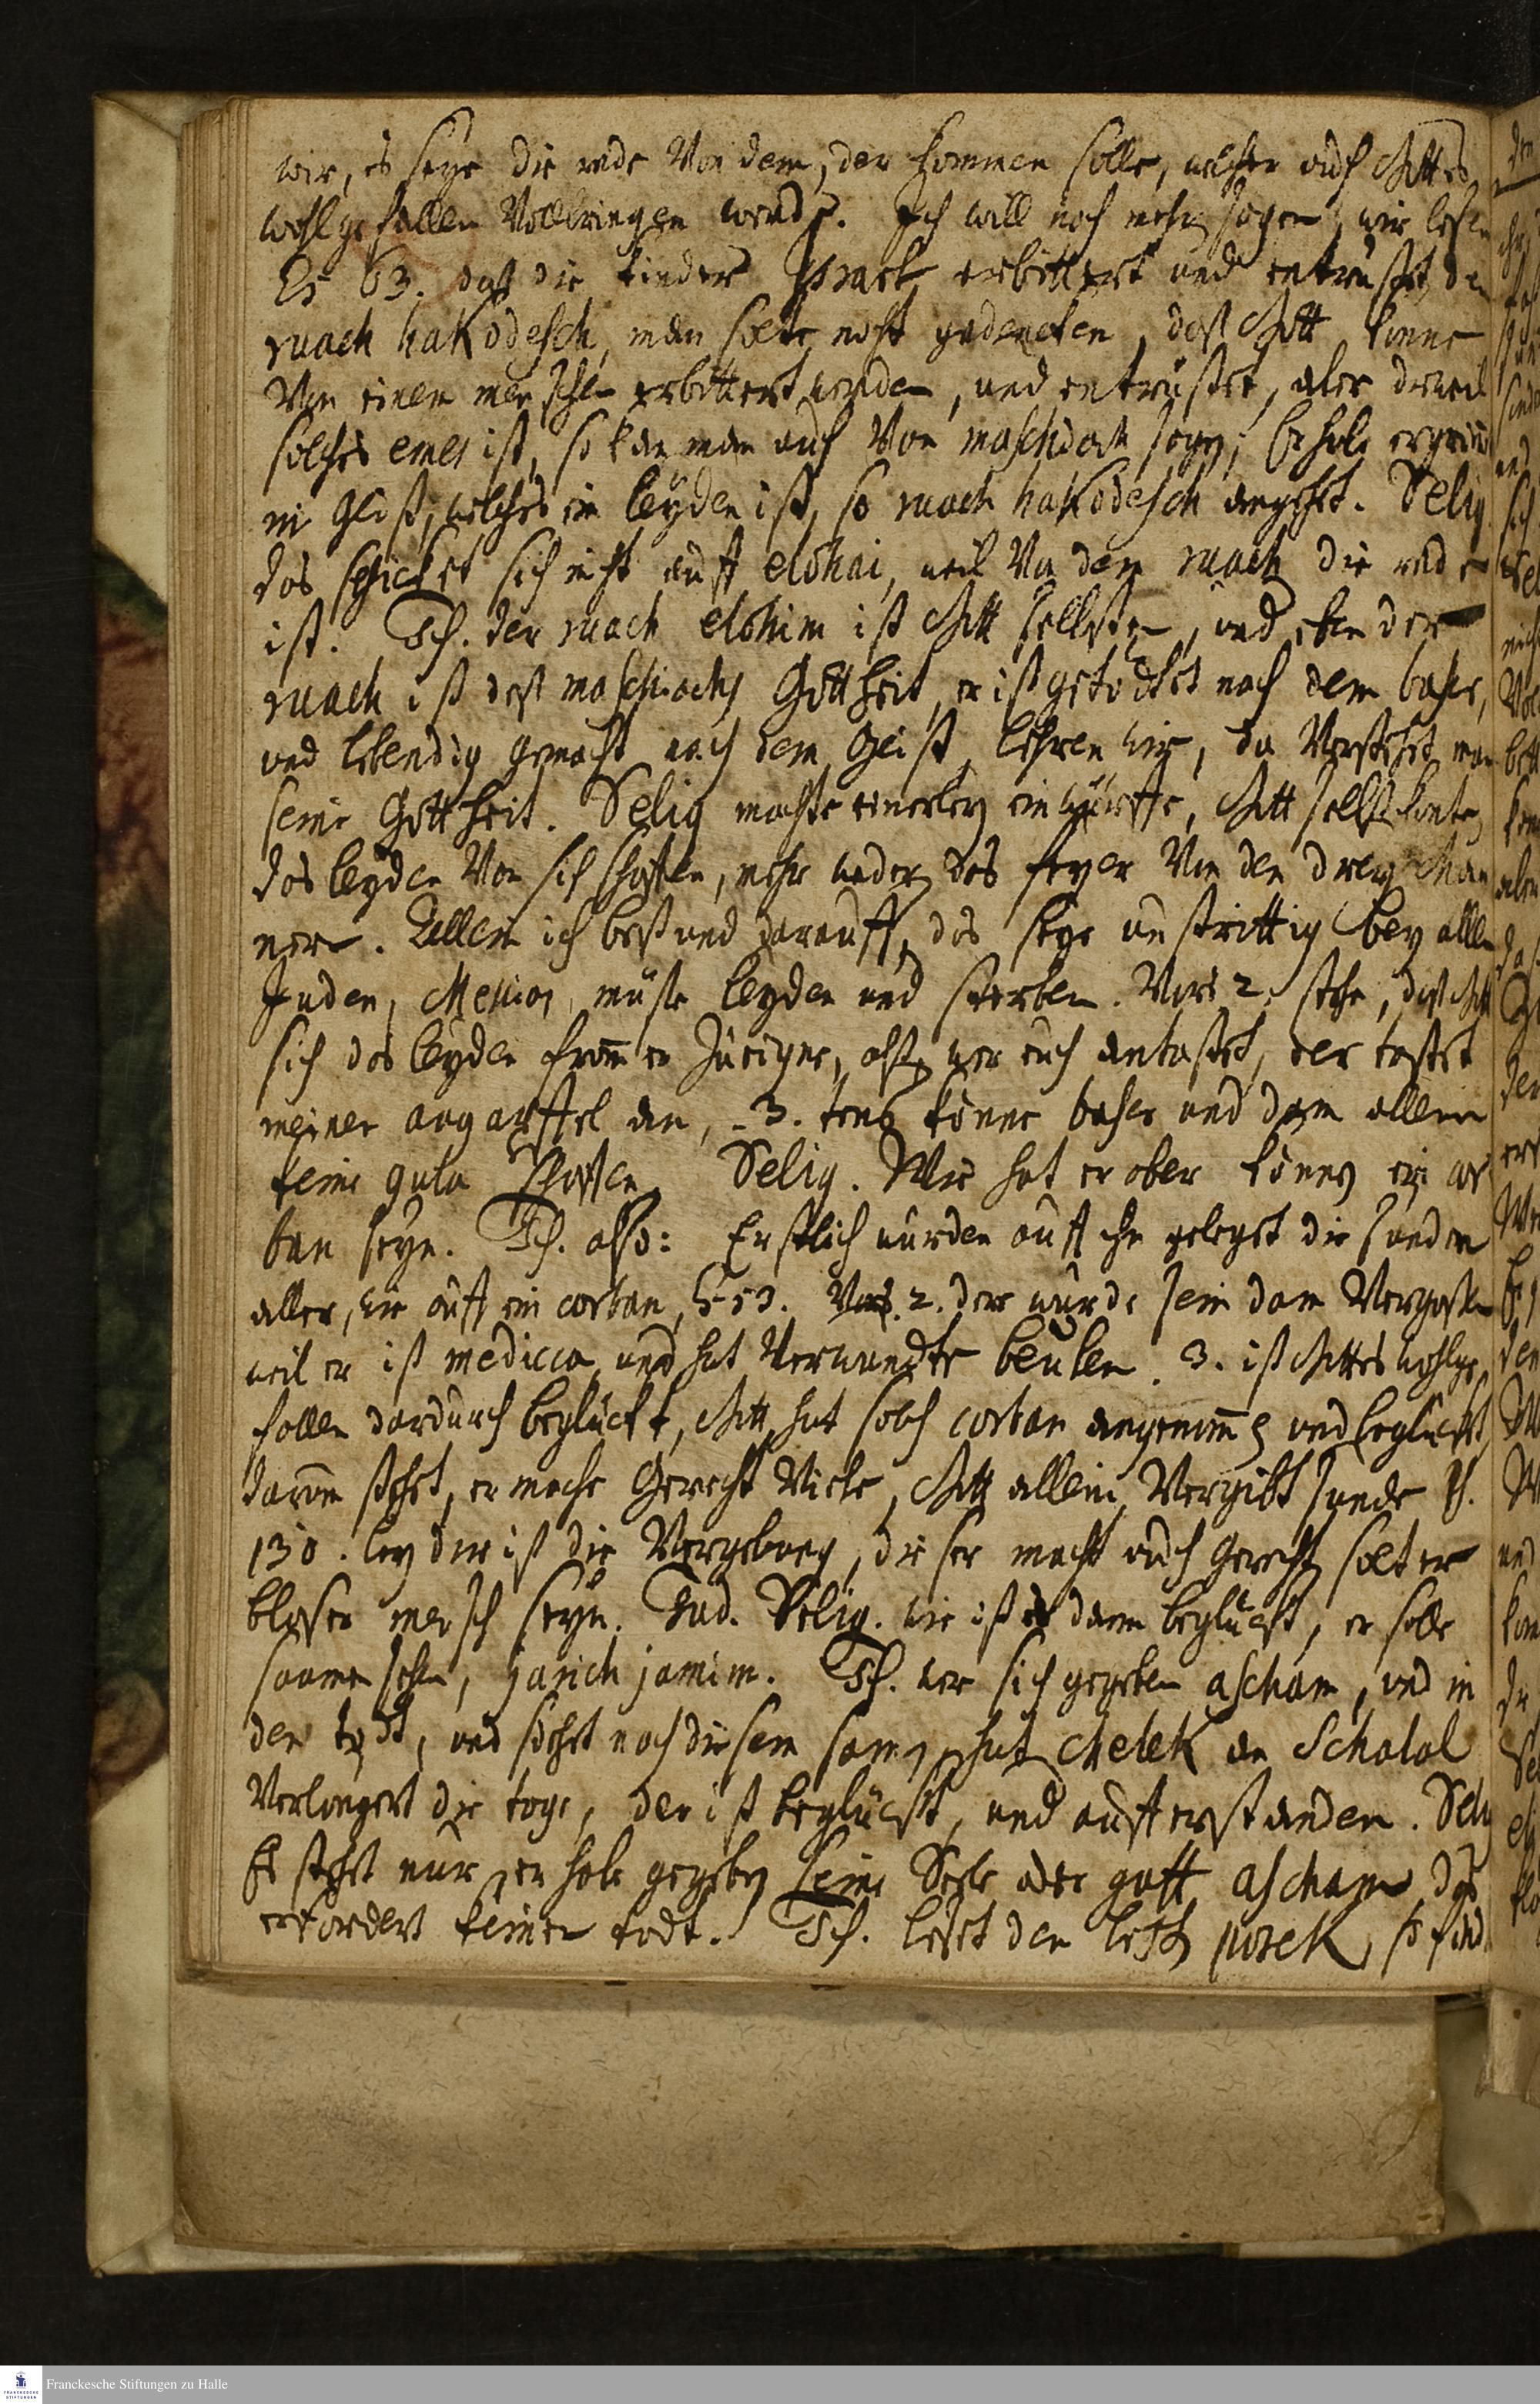 wir, es seye die rede Von dem, der kommen solle, welcher auch Gottes
wohlgefallen Vollbringen werde. Ich will noch mehr sagen, wir lesen
Es 63. daß die kinder Israel erbittert und entrüstet den
ruach haKodesch, man solte nicht gedencken, daß Gott könne
Von einem menschen erbittert werden, und entrüstet, aber dieweil
solches emes ist, so kan man auch Von maschiach sagen, Er habe
im Geist, welches ein leyden ist, so ruach haKodesch angehet. Selig
das schicket sich nicht auff elohai, weil Von dem ruach die rede
ist. Ich. der ruach elohim ist Gott selbsten, und eben der
ruach ist deß maschiachs Gottheit, er ist getödtet nach dem baser,
und lebendig gemacht nach dem Geist, lehren wir, da Verstehet man
seine Gottheit. Selig machte einerley einwürffe, Gott selbst konte
das leyden Von sich schaffen, mehr weder das feyer Von den drey Män
ner. Allein ich bestund darauff, das seye unstrittig bey allen
Juden, Messias müsse leyden und sterben. Vors 2. stehe, daß Gott
sich das leyden from̄er zueigne, alß, wer euch antastet, der tastet
meinen augapffel an, 3. tens könne baser und dam allein
keine gula schaffen. Selig. Wie hat er aber können ein cor
ban seyn. Ich. also: Erstlich wurden auff ihn gelegt die sunden
aller, wie auff ein corban, Es 53. Vors 2. der wurde sein dam Vergossen
weil er ist medicca, und hat Verwundte beulen. 3. ist Gottes wohlge
fallen dardurch beglückt, Gott hat solch corban angenom̄en und beglückt,
darum stehet, er mache Gerecht Viele, Gott allein Vergibt sunde Ps.
130. bey dir ist die Vergebung, dieser macht auch Gerecht, solt er
bloser mensch seyn. Jud. Selig. wie ist er dann beglückt, er solle
saamen sehen, jarich jamim. Ich. wer sich gegeben ascham, und in
den todt, und siehet nach diesem samen, hat chelek an Schalal
Verlangert die tage, der ist beglückt, und aufferstanden. Selig
Es stehet nur, er habe gegeben seine Seele oder guff ascham, das
erfordert keinen todt. Ich. leset den letzten pusek, so find
Franckesche Stiftungen zu Halle